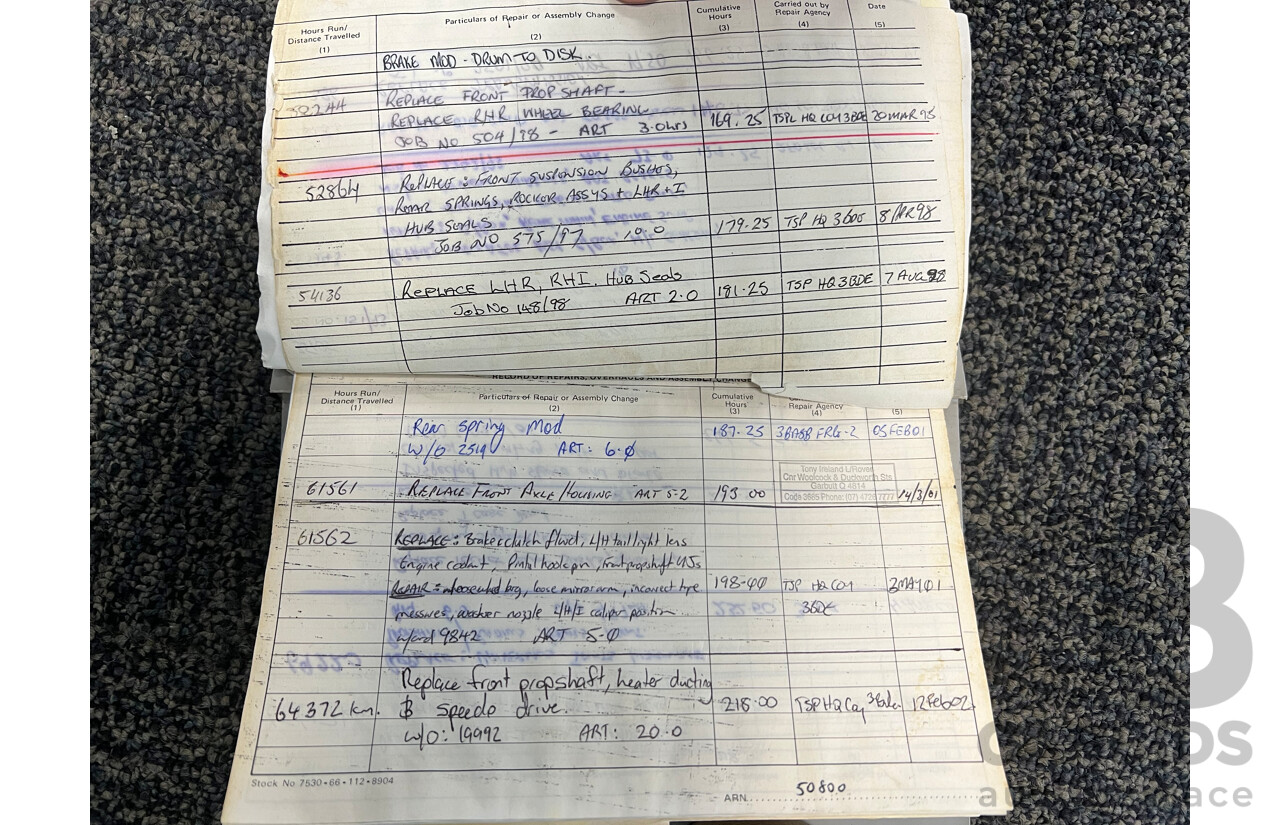 Hours Run/ Distance Travelled (1) Particulars of Repair or Assembly Change (2) Cumulative Hours (3) Carried out by Repair Agency (4) Date (5)
BRAKE MOD - DRUM TO DISK.
REPLACE FRONT PROP SHAFT -
REPLACE RHR WHEEL BEARING 169.25
JOB NO 504/98 - ART 3.0hrs
52864 REPLACE : FRONT SUSPENSION BUSHES,
REAR SPRINGS, ROCKER ASSYS + LHR + I
HUB SEALS 179.25 TSP HQ 3 BDE
JOB NO 575/97 10.0
54136 REPLACE LHR, RHI. HUB Seals 181.25 TSP HQ 3 BDE 7 AUG 98
Job No 148/98 ART 2.0
RECORD OF REPAIRS, OVERHAULS AND ASSEMBLY CHANGE
Hours Run/ Distance Travelled (1) Particulars of Repair or Assembly Change (2) Cumulative Hours (3) Repair Agency (4) (5)
Rear Spring Mod 187.25 3BASB FRG-2 05FEB01
W/O 2519 ART: 6.0
Tony Ireland L/Rover
Cnr Woolcock & Duckworth Sts
Garbutt Q 4814
61561 REPLACE FRONT AXLE HOUSING ART 5-2 193 00 14/3/01
61562 REPLACE: Brake clutch fluid, L/H tail light lens
Engine coolant, Pintal hook pin, front propshaft UJs
REPAIR: loose mirror arm, incorrect tyre 198-00 TSP HQ COY 2MAY01
pressures, washer nozzle L/H/I caliper position 3BDE
9842 ART 5-0
Replace front propshaft, heater ducting
64372 km. & speedo drive. 218.00 TSP HQ Coy 3Bde 12Feb02
W/O: 19992 ART: 20.0
Stock No 7530•66•112•8904
ARN 50800